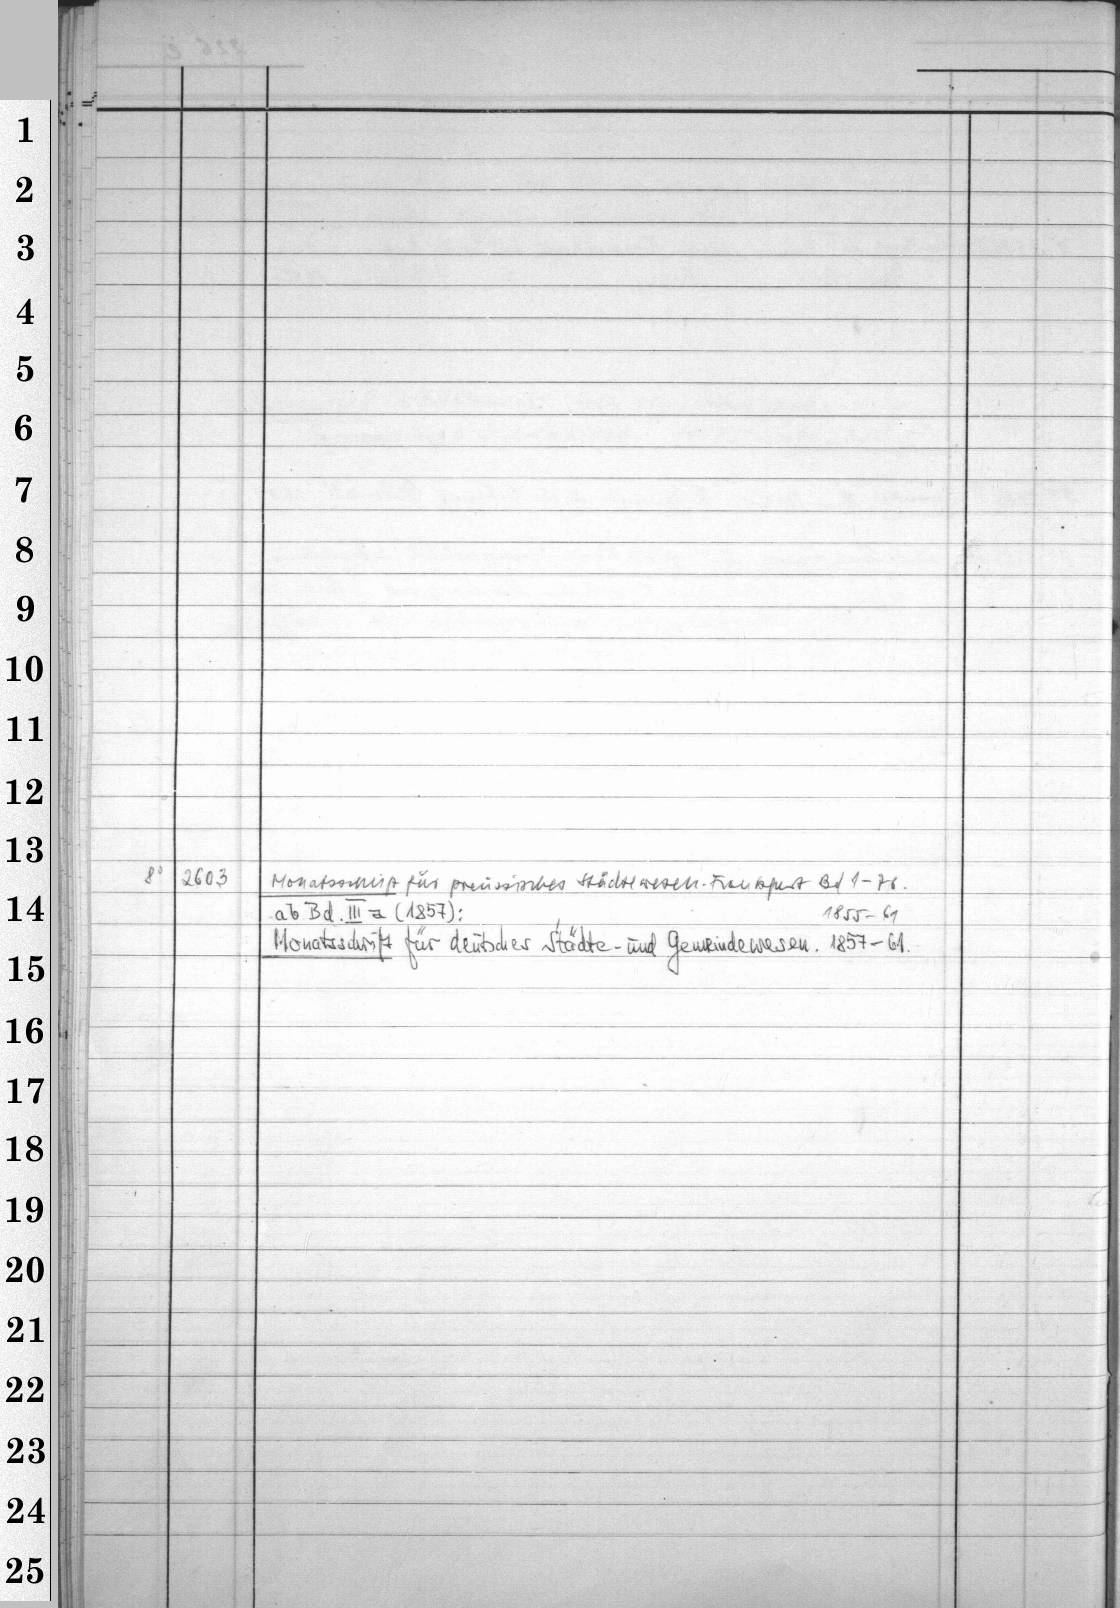 1
2
3
4
5
6
7
8
9
10
11
12
13
8° 2603 Monatsschrift für preussisches Städtewesen. Frankfurt Bd 1-7b.
14
ab Bd. III a (1857): 1855-61
Monatsschrift für deutsches Städte- und Gemeindewesen. 1857-61.
15
16
17
18
19
20
21
22
23
24
25